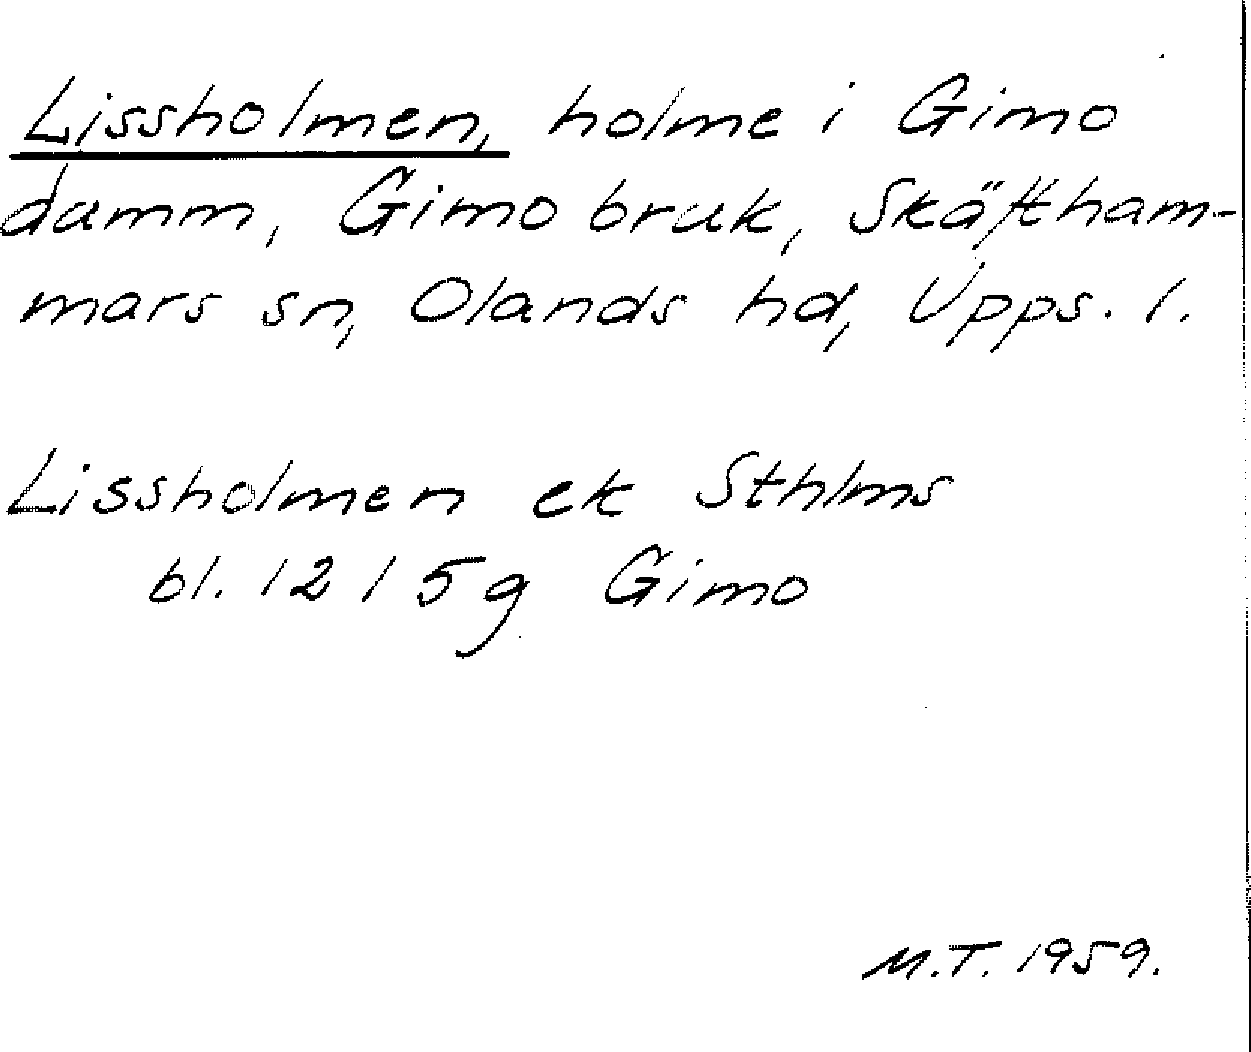 Lissholmen, holme i Gimo
damm, Gimo bruk, Skäftham-
mars sn, Olands hd, Upps. l.
Lissholmen ek Sthlms
bl. 12 I 5g Gimo
M.T. 1959.